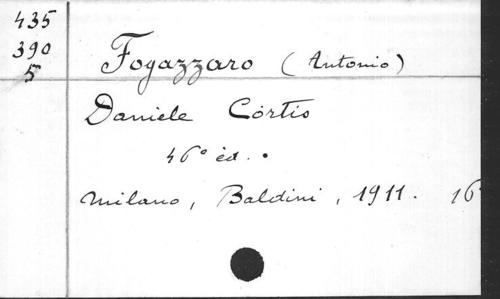 435
390
5
Fogazzaro (Antonio)
Daniele Cortis
46° éd.
Milano, Baldini, 1911. 16°